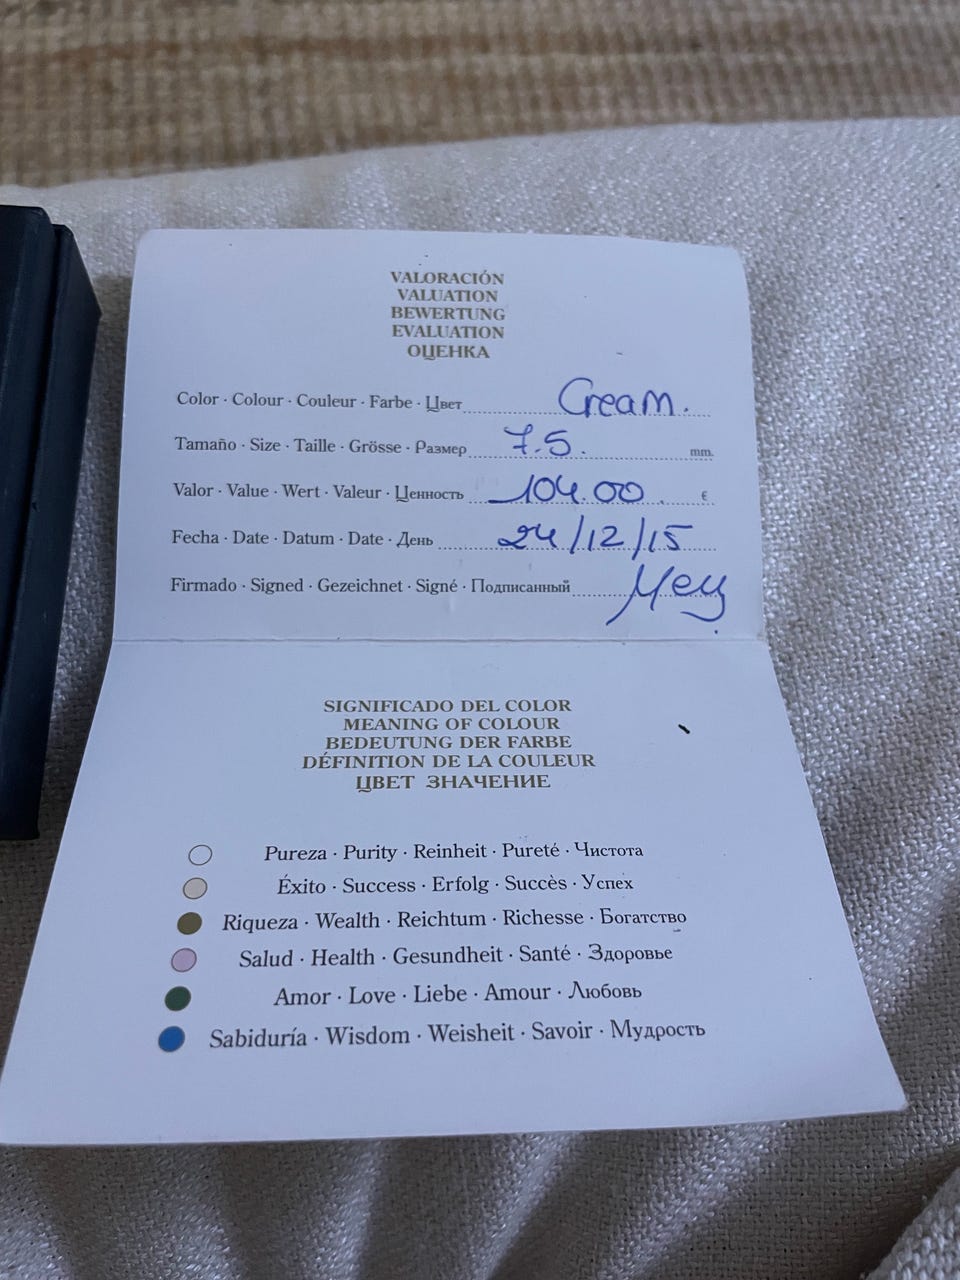 VALORACIÓN
VALUATION
BEWERTUNG
EVALUATION
ОЦЕНКА
Color · Colour · Couleur · Farbe · Цвет Cream.
Tamaño · Size · Taille · Grösse · Размер 7.5. mm.
Valor · Value · Wert · Valeur · Ценность 104.00 €
Fecha · Date · Datum · Date · День 24/12/15
Firmado · Signed · Gezeichnet · Signé · Подписанный
SIGNIFICADO DEL COLOR
MEANING OF COLOUR
BEDEUTUNG DER FARBE
DÉFINITION DE LA COULEUR
ЦВЕТ ЗНАЧЕНИЕ
Pureza · Purity · Reinheit · Pureté · Чистота
Éxito · Success · Erfolg · Succès · Успех
Riqueza · Wealth · Reichtum · Richesse · Богатство
Salud · Health · Gesundheit · Santé · Здоровье
Amor · Love · Liebe · Amour · Любовь
Sabiduría · Wisdom · Weisheit · Savoir · Мудрость